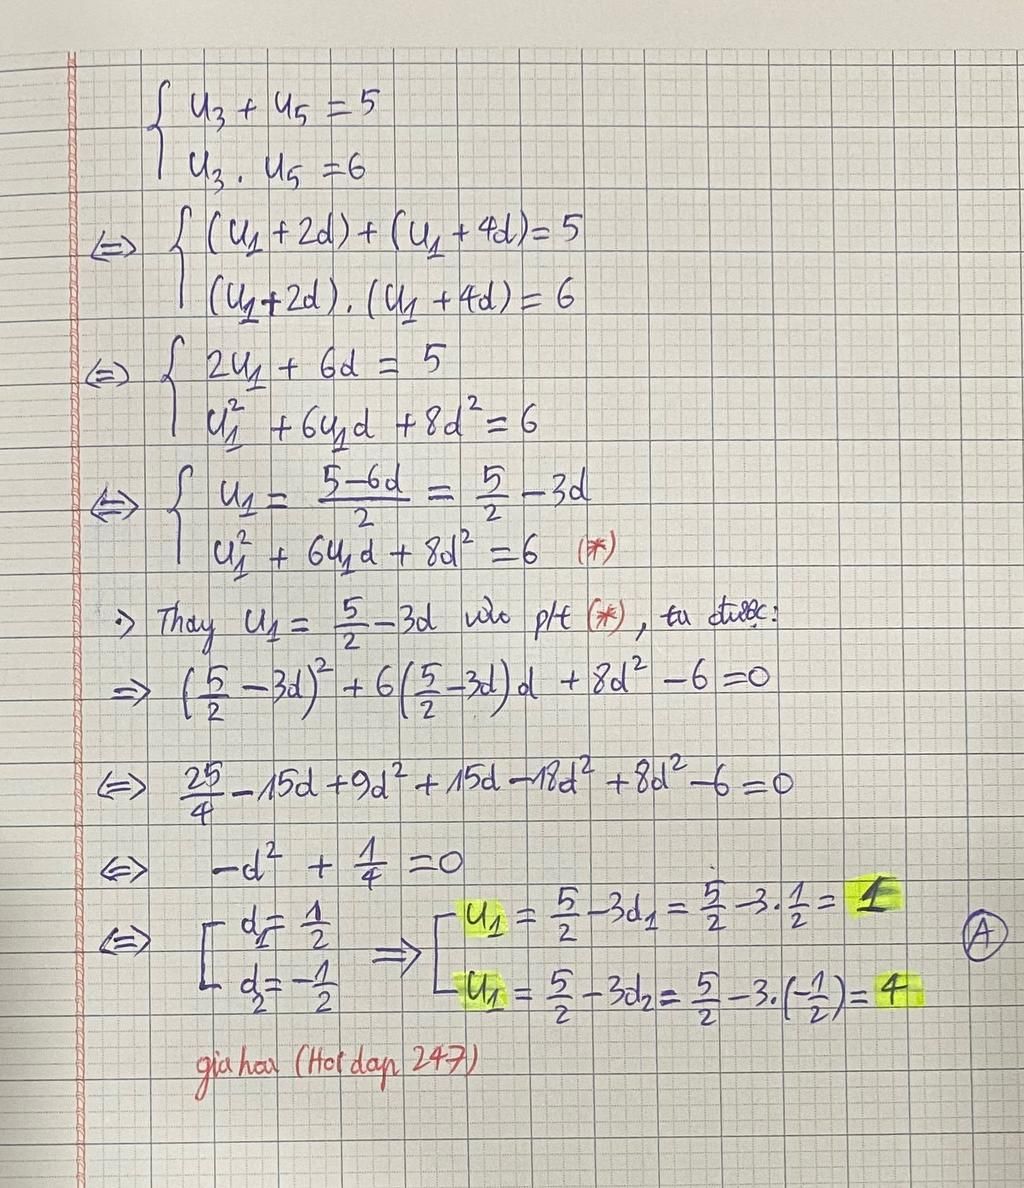 { u₃ + u₅ = 5
u₃ . u₅ = 6
⇔ { (u₁ + 2d) + (u₁ + 4d) = 5
(u₁ + 2d) . (u₁ + 4d) = 6
⇔ { 2u₁ + 6d = 5
u₁² + 6u₁d + 8d² = 6
⇔ { u₁ = (5-6d)/2 = 5/2 - 3d
u₁² + 6u₁d + 8d² = 6 (*)
Thay u₁ = 5/2 - 3d vào pht (*), ta được:
⇒ (5/2 - 3d)² + 6(5/2 - 3d)d + 8d² - 6 = 0
⇔ 25/4 - 15d + 9d² + 15d - 18d² + 8d² - 6 = 0
⇔ -d² + 1/4 = 0
⇔ [ d₁ = 1/2 ⇒ [ u₁ = 5/2 - 3d₁ = 5/2 - 3.1/2 = 1
d₂ = -1/2 u₁ = 5/2 - 3d₂ = 5/2 - 3.(-1/2) = 4
A
giahoa (Hoidap 247)